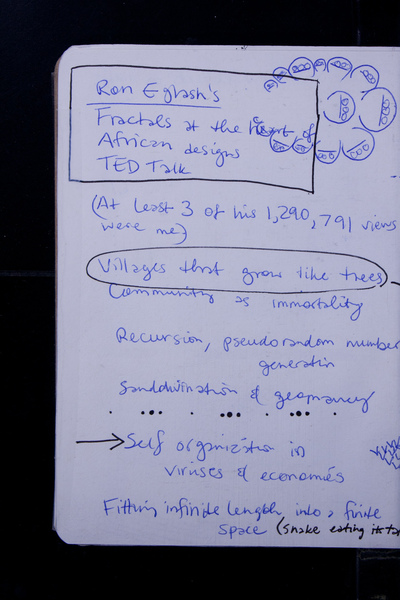 Ron Eglash's
Fractals at the heart of
African designs
TED Talk
(At least 3 of his 1,290,791 views
were me)
Villages that grow like trees
Community as immortality
Recursion, pseudorandom number
generation
& geomancy
Self organization in
viruses & economies
Fitting infinite length into a finite
space (snake eating its ta